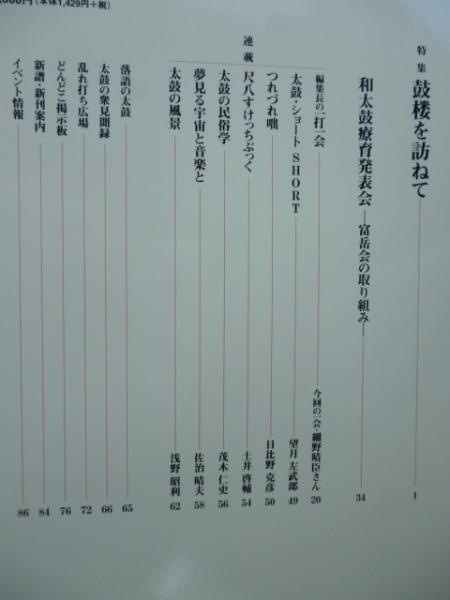 特集
鼓楼を訪ねて 1
和太鼓療育発表会―富岳会の取り組み― 34
連載
編集長の一打一会 今回の一会・細野晴臣さん 20
太鼓・ショート SHORT 望月 左武郎 49
つれづれ咄 日比野 克彦 50
尺八すけっちぶっく 土井 啓輔 54
太鼓の民俗学 茂木 仁史 56
夢見る宇宙と音楽と 佐治 晴夫 58
太鼓の風景 浅野 昭利 62
落語の太鼓 65
太鼓の衆見聞録 66
乱れ打ち広場 72
どんどこ掲示板 76
新譜・新刊案内 84
イベント情報 86
(本体1,429円+税)